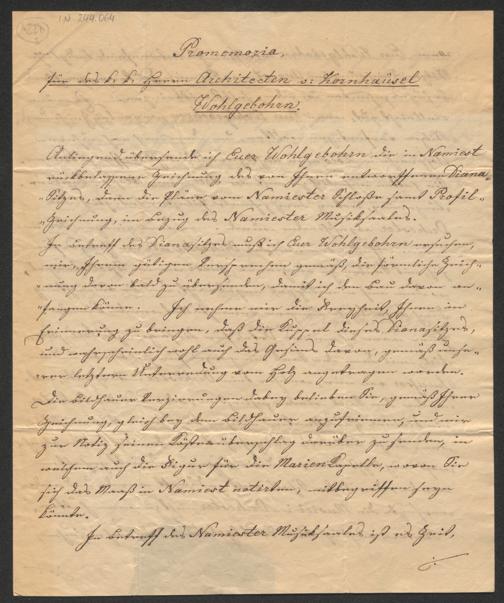 IN 244.064
Promemoria,
für des k: k: Herrn Architecten v: Kornhäusel
Wohlgebohrn.
Anliegend übersende ich Euer Wohlgebohrn die in Namiest
rückbelassene Zeichnung des von Ihnen entworffenen Diana
Sitzes, dann die Pläne vom Namiester Schloße samt Profil-
Zeichnung, in bezug des Namiester Musiksaales.
In betreff des Dianasitzes muß ich Euer Wohlgebohrn ersuchen,
mir, Ihrem gütigen Versprechen gemäß, die förmliche Zeich-
nung davon bald zu übersenden, damit ich den Bau davon an-
fangen könne. Ich nehme mir die Freyheit, Ihnen in
Erinnerung zu bringen, daß die Kuppel dieses Dianasitzes,
und wahrscheinlich wohl auch das Gesims davon, gemäß unse-
rer letztern Unterredung von Holz angetragen worden.
Die bildhauer Verzierungen dabey belieben Sie, gemäß Ihrer
Zeichnung, gleich bey dem bildhauer anzufriemen, und mir
zur Notiz seinen Kosten überschlag darüber zu senden, in
welchem auch die Figur für die Marien Kapelle, wovon Sie
sich das Maaß in Namiest notirten, mitbegriffen seyn
könnte.
In betreff des Namiester Musiksaales ist es Zeit,